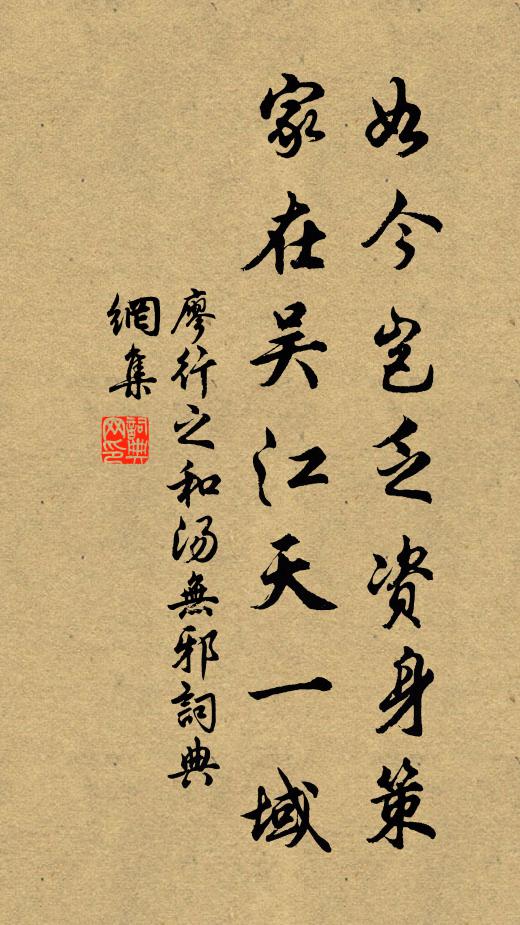 如今岂乏資身策
家在吴江天一域
廖行之和湯無邪詞典
網集
詞典网印